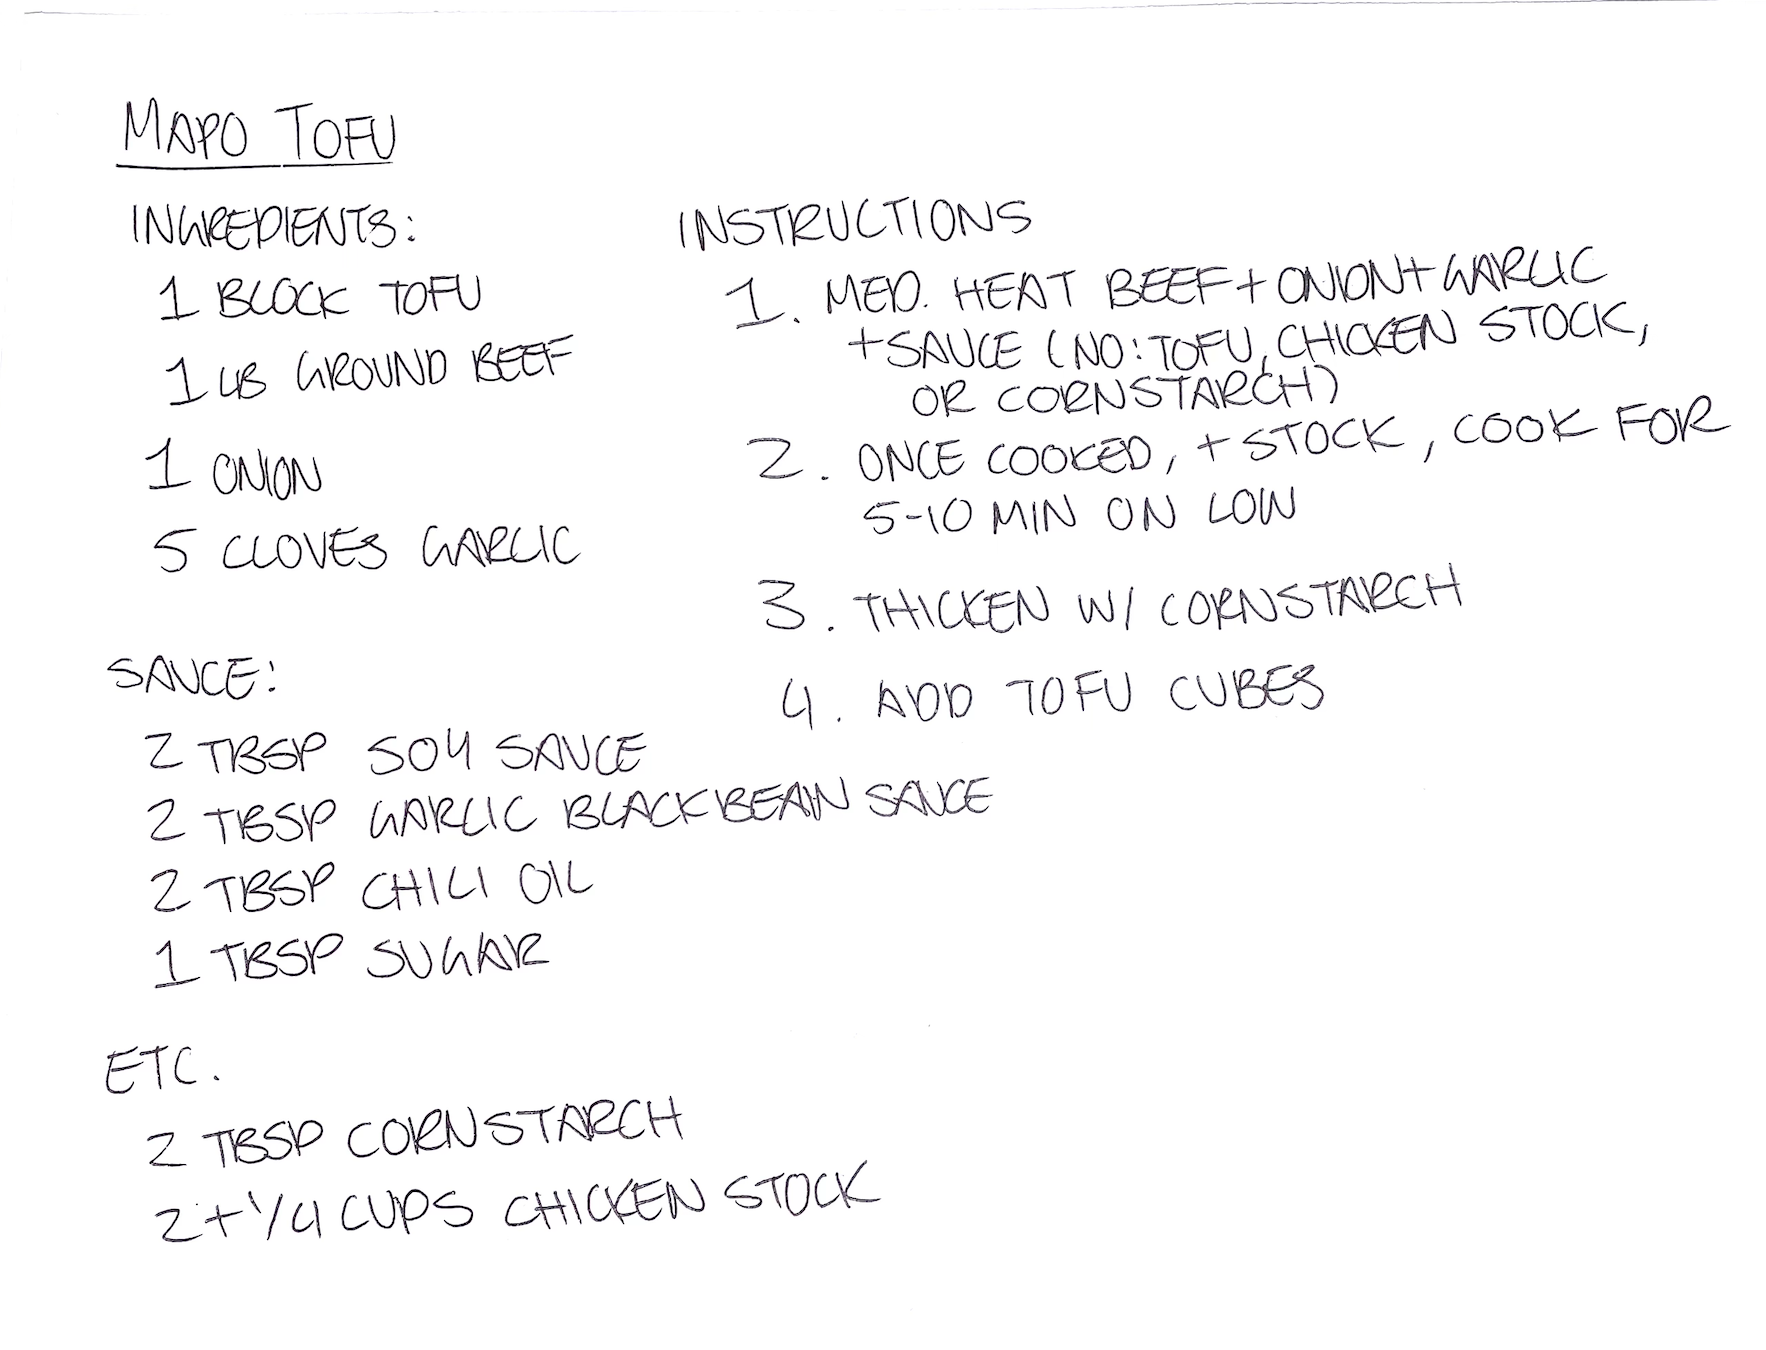 MAPO TOFU
INGREDIENTS:
1 BLOCK TOFU
1 LB GROUND BEEF
1 ONION
5 CLOVES GARLIC
SAUCE:
2 TBSP SOY SAUCE
2 TBSP GARLIC BLACK BEAN SAUCE
2 TBSP CHILI OIL
1 TBSP SUGAR
ETC.
2 TBSP CORNSTARCH
2 + 1/4 CUPS CHICKEN STOCK
INSTRUCTIONS
1. MED. HEAT BEEF + ONION + GARLIC
+ SAUCE (NO: TOFU, CHICKEN STOCK,
OR CORNSTARCH)
2. ONCE COOKED, + STOCK, COOK FOR
5-10 MIN ON LOW
3. THICKEN W/ CORNSTARCH
4. ADD TOFU CUBES